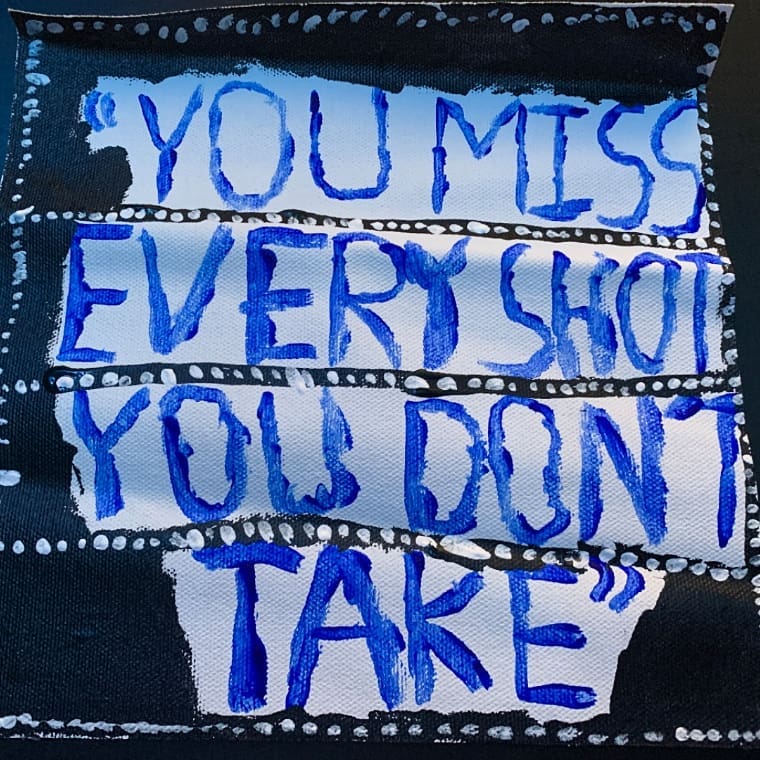 “YOU MISS
EVERY SHOT
YOU DON'T
TAKE”